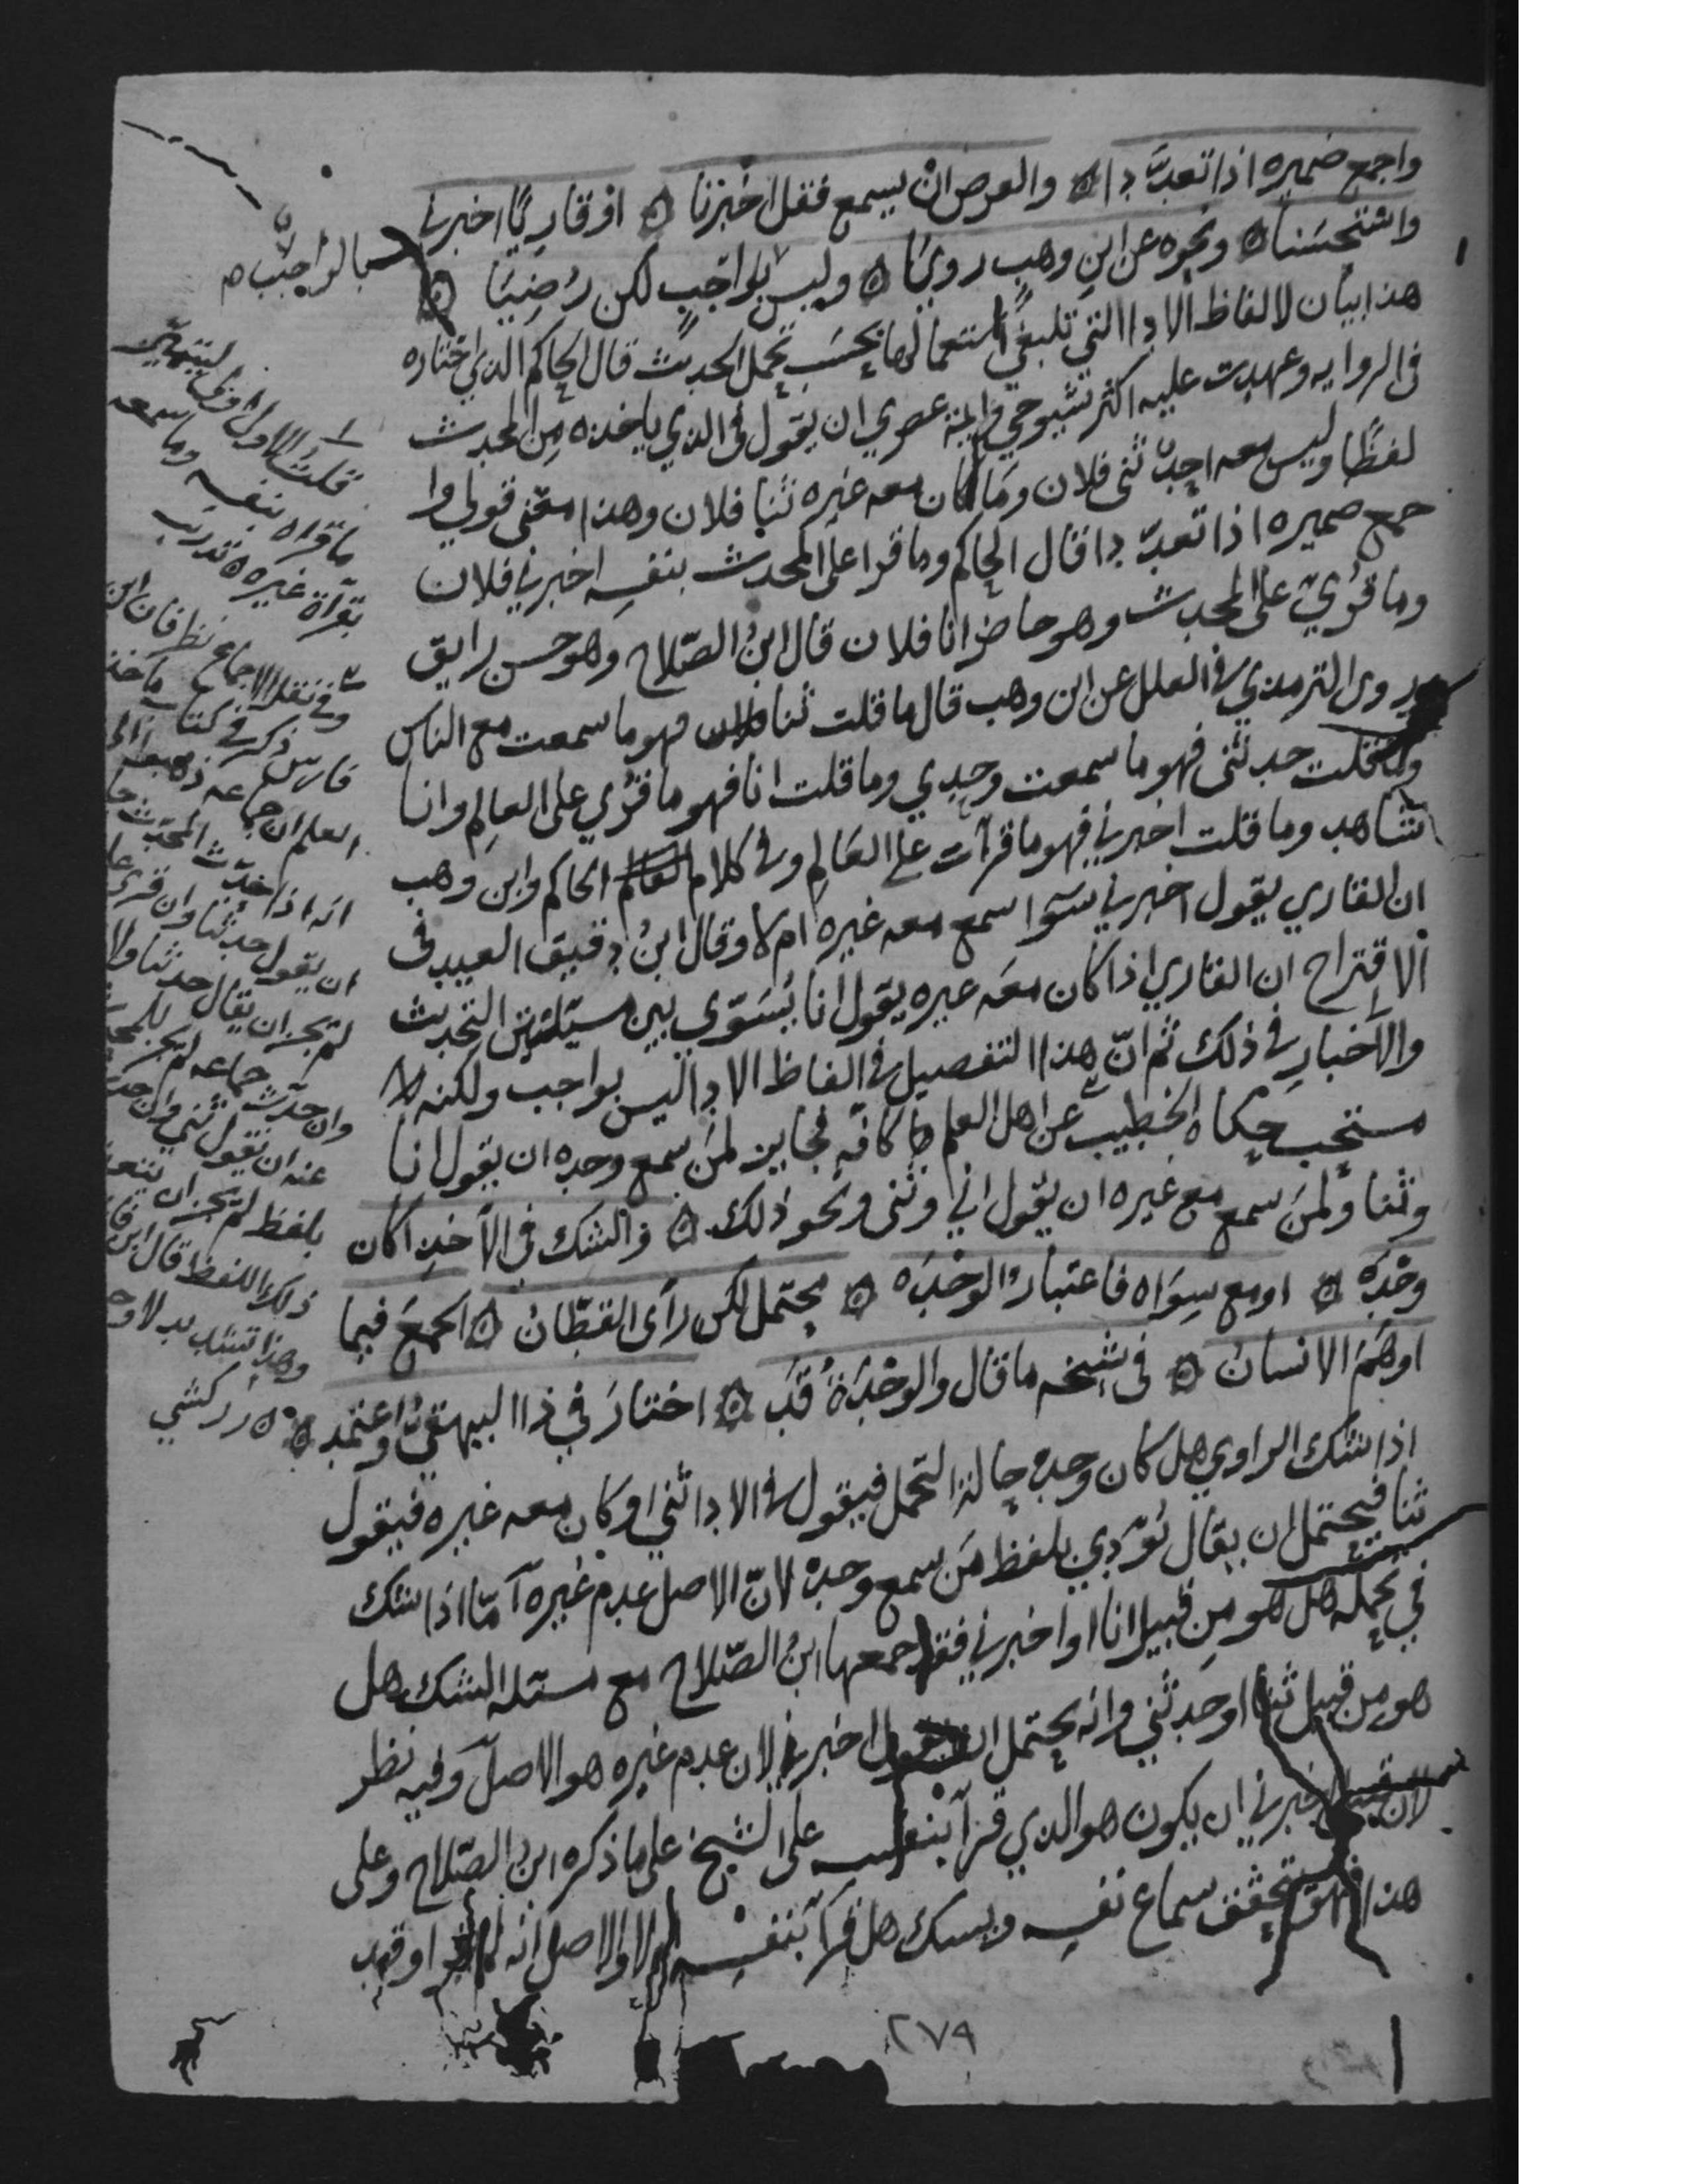 واجمع ضميره اذا تعددا ۞ والعرض ان يسمع فقل اخبرنا ۞ اوقاريًا اخبرني
واستحسنا ۞ ونحوه عن ابن وهب رويا ۞ وليس بالواجب لكن رضيا ۞
هذا بيان لالفاظ الادا التي ينبغي استعمالها بحسب تحمل الحديث قال الحاكم الذي اختاره
في الروايه وعهدت عليه اكثر شيوخي وايمة عصري ان يقول في الذي ياخذه من المحدث
لفظًا وليس معه احد ثني فلان وما كان معه غيره ثنا فلان وهذا معنى قولي وا
جمع ضميره اذا تعددا قال الحاكم وما قرا على المحدث بنفسه اخبرني فلان
وما قرئ على المحدث وهو حاضر انا فلان قال ابن الصلاح وهو حسن رايق
وروى الترمذي في العلل عن ابن وهب قال ما قلت ثنا فهو ما سمعت مع الناس
وما قلت حدثني فهو ما سمعت وحدي وما قلت انا فهو ما قرئ على العالم وانا
شاهد وما قلت اخبرني فهو ما قرات على العالم وفي كلام الحاكم وابن وهب
ان القاري يقول اخبرني سوا سمع معه غيره ام لا وقال ابن دقيق العيد في
الاقتراح ان القاري اذا كان معه غيره يقول انا يسوي بين مسيلتي التحديث
والاخبار في ذلك ثم ان هذا التفصيل في الفاظ الادا ليس بواجب ولكنه
مستحب حكاه الخطيب عن اهل العلم كافه فجايز لمن سمع وحده ان يقول انا
وثنا ولمن سمع مع غيره ان يقول اني وثني ونحو ذلك ۞ والشك في الاخذ اكان
وحده ۞ او مع سواه فاعتبار الوحده ۞ محتمل لكن رأى القطان ۞ الجمع فيما
اوهم الانسان ۞ في شيخه ما قال والوحدة قد ۞ اختار في ذا البيهقي واعتمد ۞
اذا شك الراوي هل كان وحده حالة التحمل فيقول في الادا ثني او كان معه غيره فيقول
ثنا فيحتمل ان يقال يودي بلفظ من سمع وحده لان الاصل عدم غيره اما اذا شك
في تحمله هل هو من قبيل انا او اخبرني فقد جمعها ابن الصلاح مع مسئلة الشك هل
هو من قبيل ثنا او حدثني وانه يحتمل ان يقول اخبرني لان عدم غيره هو الاصل وفيه نظر
لان قبيل اخبرني ان يكون هو الذي قرا بنفسه على الشيخ على ما ذكره ابن الصلاح وعلى
هذا فهو يتحقق سماع نفسه ويشك هل قرا بنفسه ام لا والاصل انه لم يقرا وقد
بالواجب
قلت الاول اولى ليتميز
ما قراه بنفسه وما سمعه
بقراة غيره
وفي نقله الاجماع نظر فان ابن
فارس ذكر في كتاب ماخذ
العلم ان جماعه ذهبوا الى
انه اذا حدث المحدث
ان يقول حدثنا وان قرئ
لم يجز ان يقال حدثنا ولا
وان حدث جماعه لم يجز للمحدث
عنه ان يقول ثني وان حدث
بلفظ لم يجز ان يتعدى
ذلك اللفظ قال ابن فارس
وهذا تشديد لا وجه
زركشي
٢٧٩